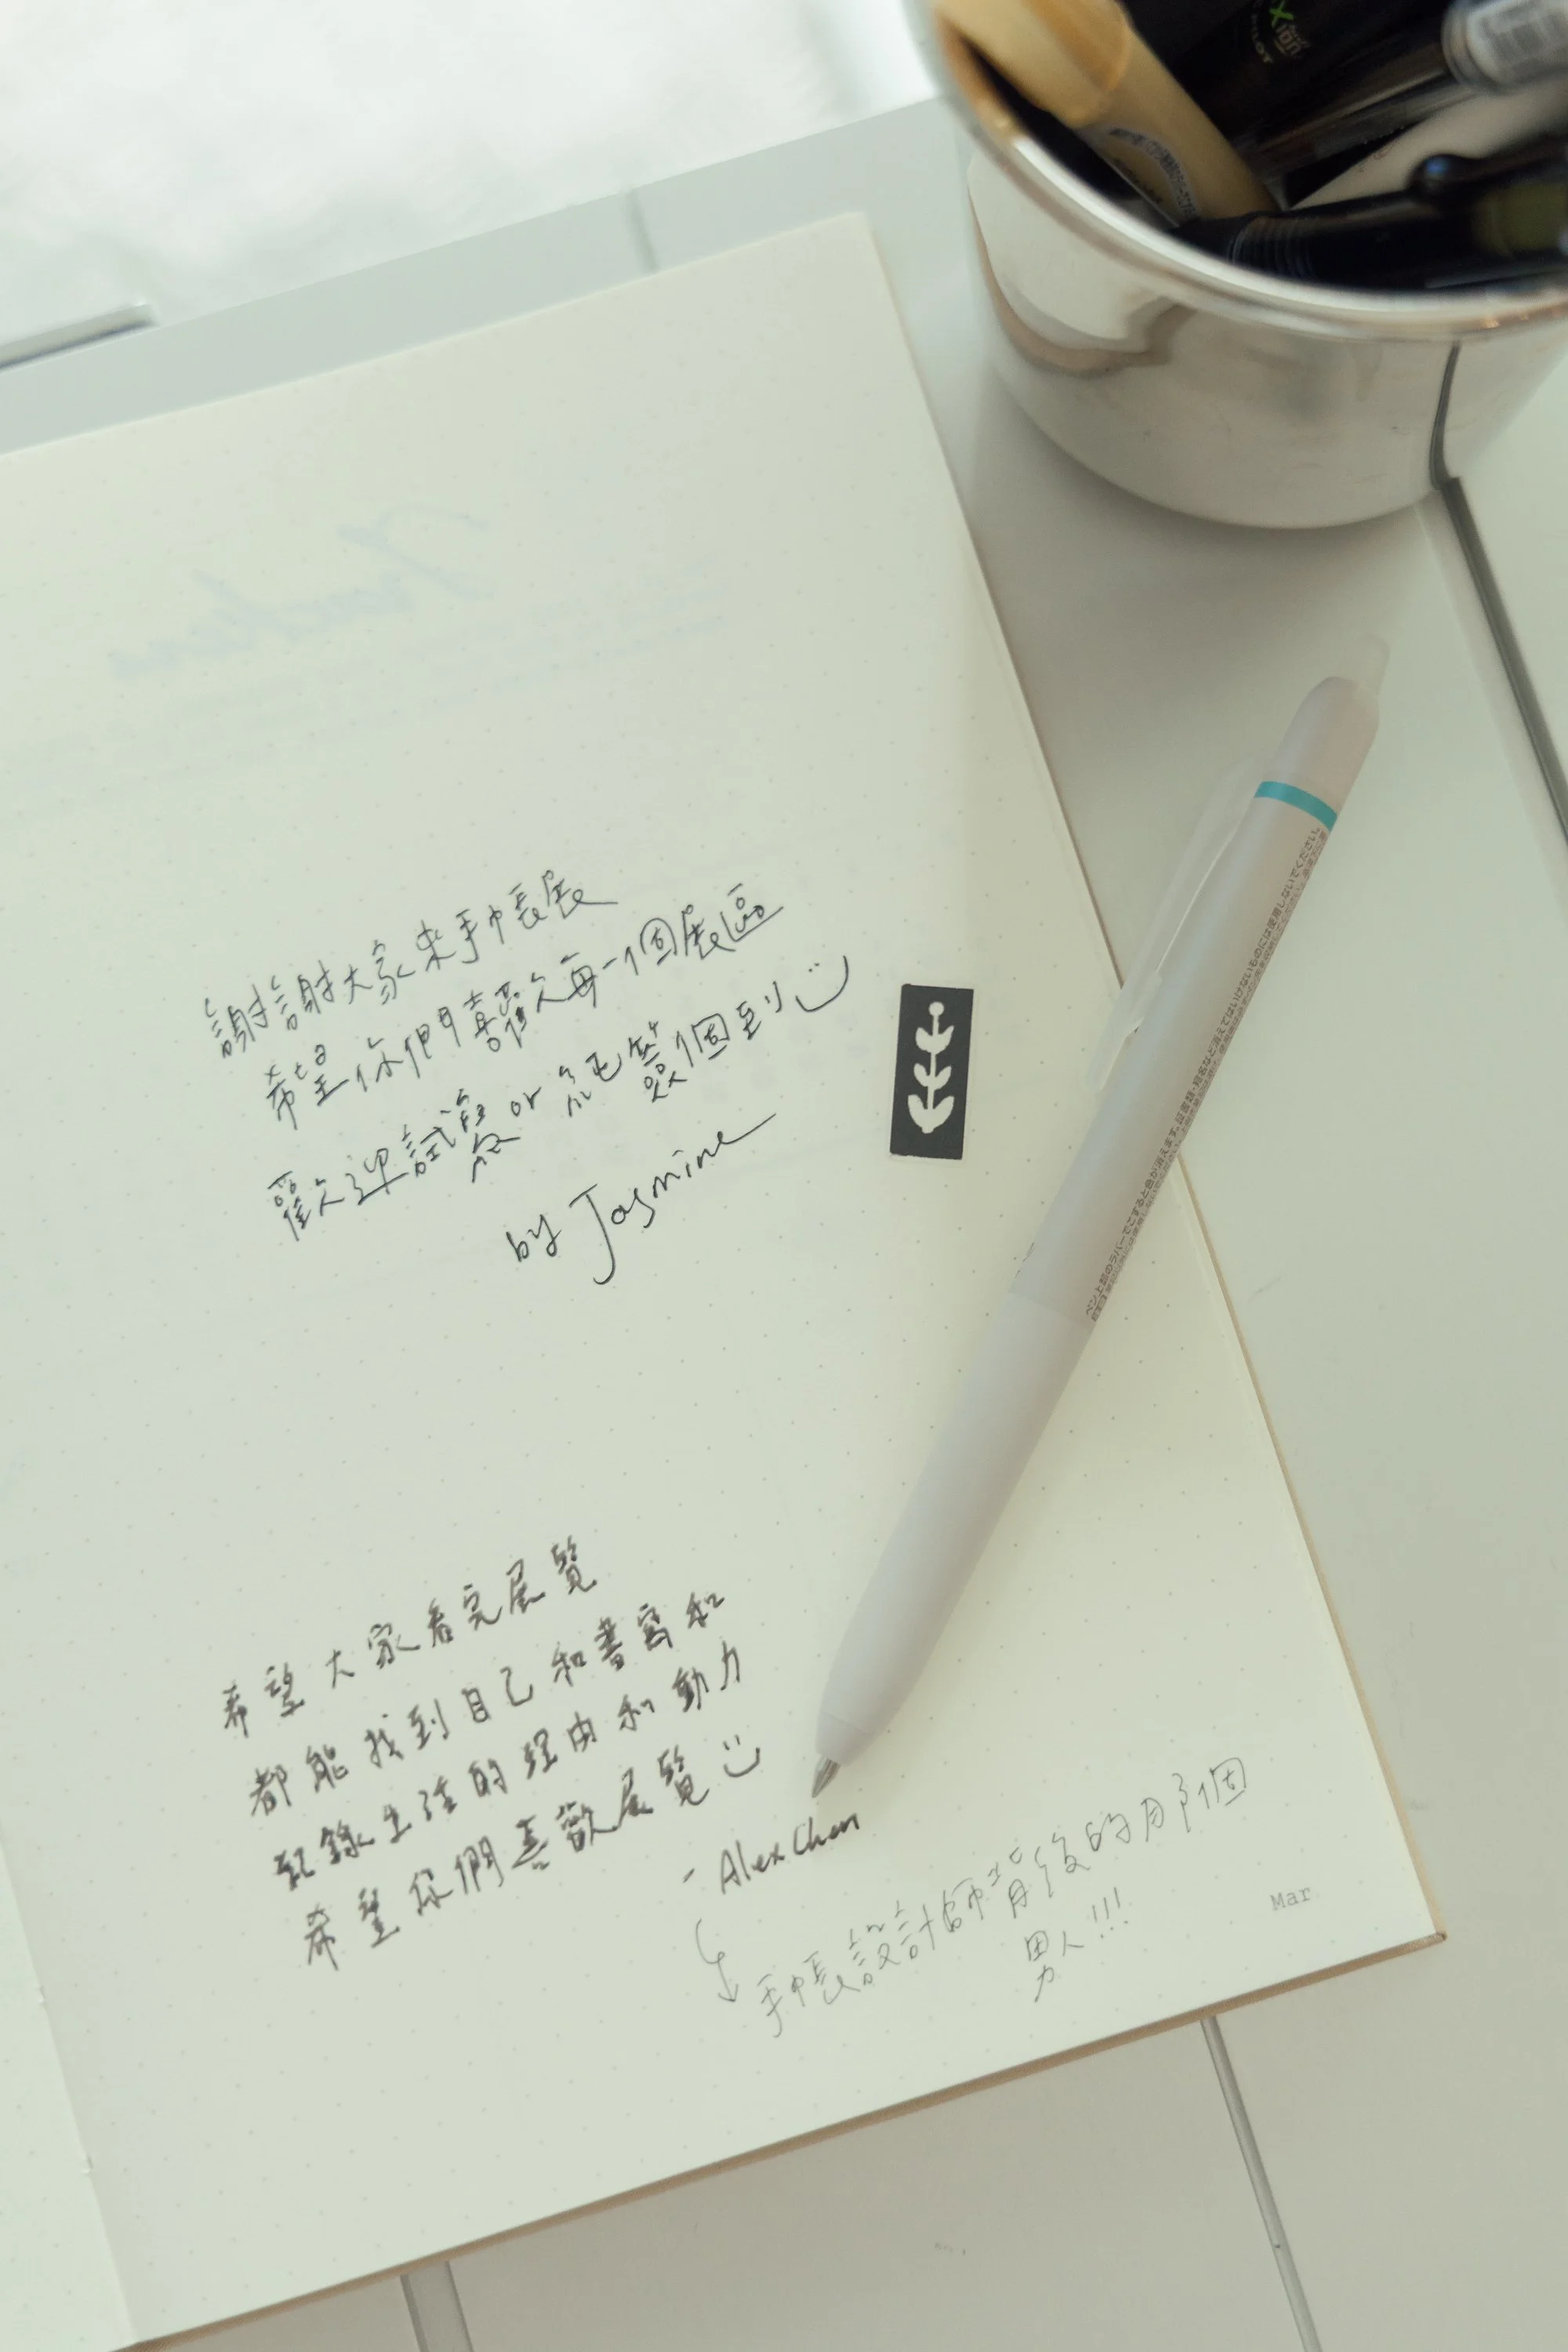 謝謝大家來手帳展
希望你們喜歡每一個展區
歡迎試寫 or 幫忙簽個到
by Jasmine
希望大家看完展覽
都能找到自己和書寫和
紀錄生活的理由和動力
希望你們喜歡展覽
- Alex Chen
手帳設計師背後的那個
男人!!!
Mar